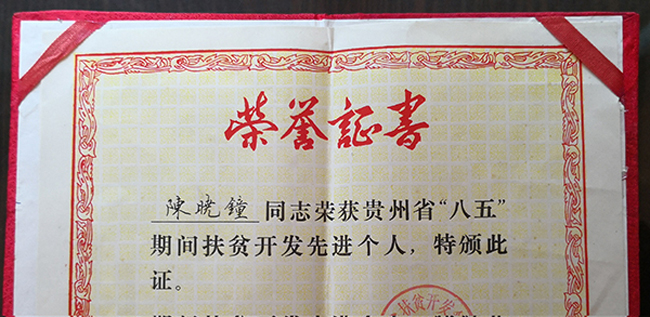 荣誉証書
陳晓鐘同志荣获贵州省“八五”
期间扶贫开发先进个人，特颁此
证。
扶贫开发